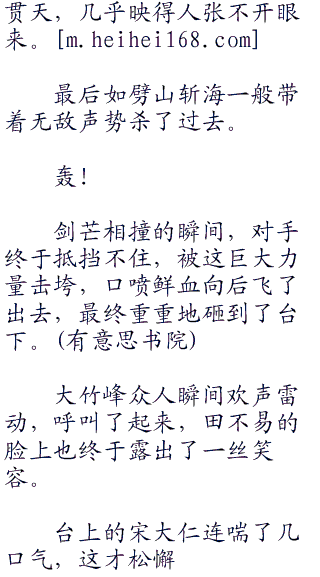 贯天，几乎映得人张不开眼
来。[m.heihei168.com]
最后如劈山斩海一般带
着无敌声势杀了过去。
轰！
剑芒相撞的瞬间，对手
终于抵挡不住，被这巨大力
量击垮，口喷鲜血向后飞了
出去，最终重重地砸到了台
下。(有意思书院)
大竹峰众人瞬间欢声雷
动，呼叫了起来，田不易的
脸上也终于露出了一丝笑
容。
台上的宋大仁连喘了几
口气，这才松懈